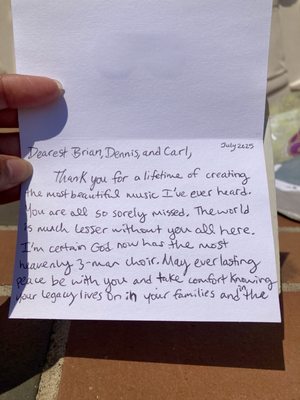 July 2025
Dearest Brian, Dennis, and Carl,
Thank you for a lifetime of creating
the most beautiful music I've ever heard.
You are all so sorely missed. The world
is much lesser without you all here.
I'm certain God now has the most
heavenly 3-man choir. May everlasting
peace be with you and take comfort knowing
your legacy lives on in your families and in the